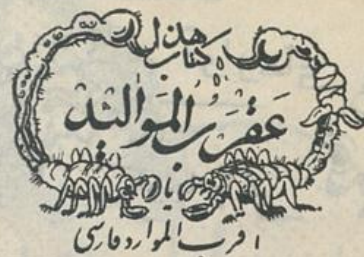 هذا كتاب
عقرب الموالید
یا
اقرب الموارد فارسی